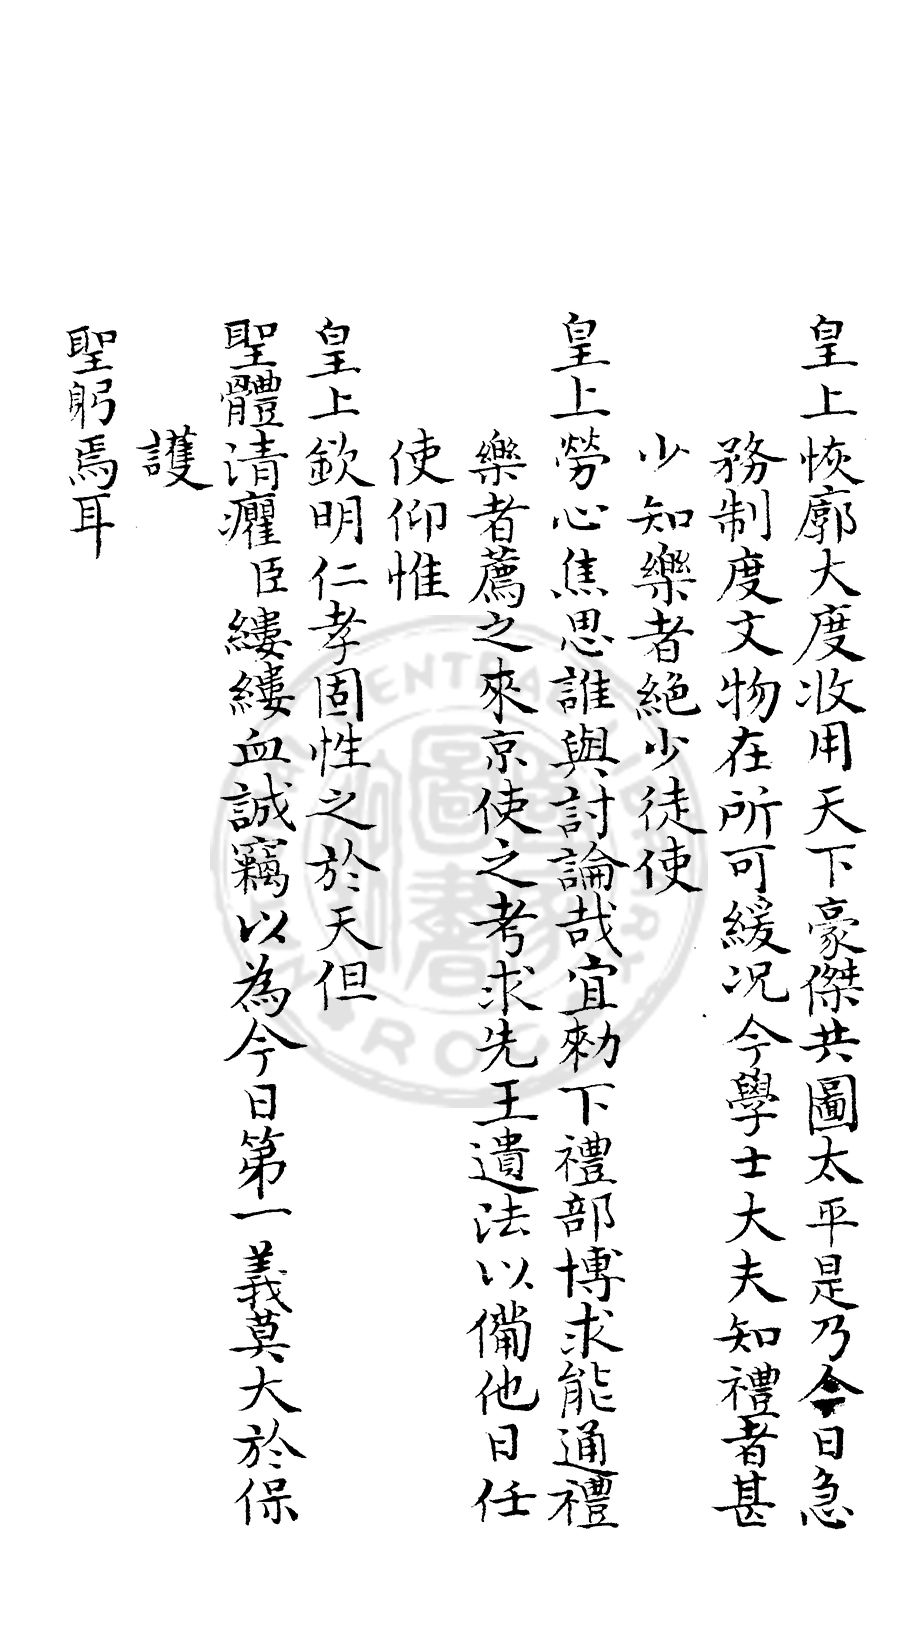 皇上恢廓大度收用天下豪傑共圖太平是乃今日急
務制度文物在所可緩况今學士大夫知禮者甚
少知樂者絕少徒使
皇上勞心焦思誰與討論哉宜勑下禮部博求能通禮
樂者薦之來京使之考求先王遺法以備他日任
使仰惟
皇上欽明仁孝固性之於天但
聖體清癯臣縷縷血誠竊以為今日第一義莫大於保
護
聖躬焉耳